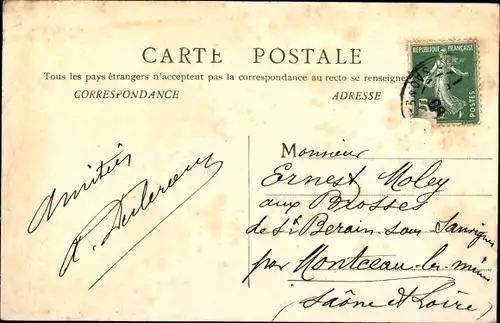 CARTE POSTALE
Tous les pays étrangers n'acceptent pas la correspondance au recto se renseigner
CORRESPONDANCE
ADRESSE
RÉPUBLIQUE FRANÇAISE
POSTES
Monsieur
Ernest Moley
aux Brosses
de St Berain sous Sanvignes
par Montceau-les-mines
(Saône et Loire)
Amitiés
A.